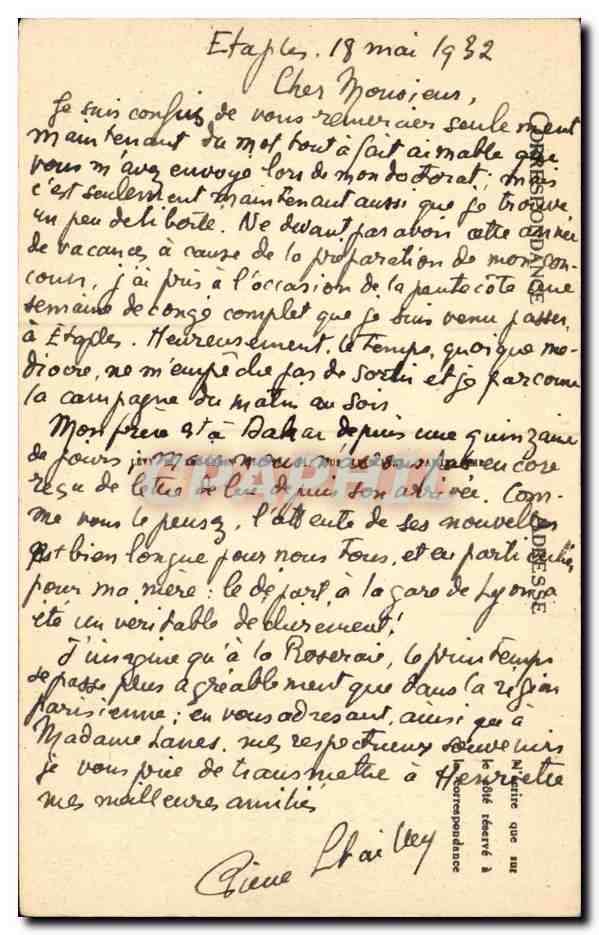 Etaples. 18 mai 1932
Cher Monsieur,
Je suis confus de vous remercier seulement
maintenant du mot tout à fait aimable que
vous m'avez envoyé lors de mon doctorat; mais
c'est seulement maintenant aussi que je trouve
un peu de liberté. Ne devant pas avoir cette année
de vacances à cause de la préparation de mon con-
cours, j'ai pris à l'occasion de la pentecôte une
semaine de congé complet que je suis venu passer
à Etaples. Heureusement, le temps, quoique mé-
diocre, ne m'empêche pas de sortir et je parcours
la campagne du matin au soir.
Mon frère est à Dakar depuis une quinzaine
de jours, mais nous n'avons pas encore
reçu de lettre de lui depuis son arrivée. Com-
me vous le pensez, l'attente de ses nouvelles
est bien longue pour nous tous, et en particulier
pour ma mère: le départ à la gare de Lyon a
été un véritable déchirement!
J'imagine qu'à la Roseraie, le printemps
se passe plus agréablement que dans la région
parisienne; en vous adressant, ainsi qu'à
Madame mes respectueux souvenirs
je vous prie de transmettre à Henriette
mes meilleures amitiés
Pierre
CORRESPONDANCE
ADRESSE
N'écrire que sur
le côté réservé à
la correspondance
CPAPHIL